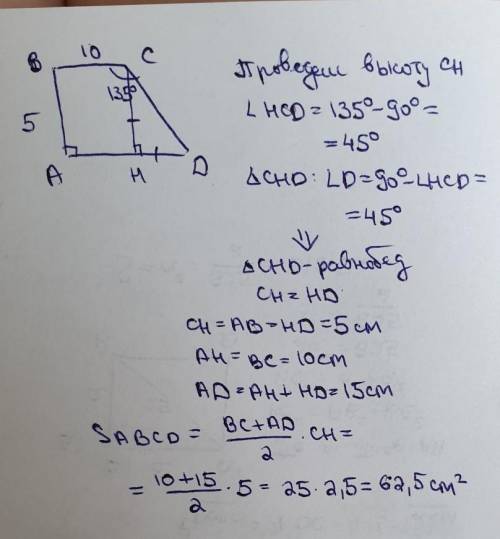 B 10 C
135°
5
A H D
Проведем высоту CH
∠HCD = 135° - 90° =
= 45°
△CHD: ∠D = 90° - ∠HCD =
= 45°
⇓
△CHD - равнобед
CH = HD
CH = AB = HD = 5 см
AH = BC = 10 см
AD = AH + HD = 15 см
SABCD = (BC+AD)/2 · CH =
= (10+15)/2 · 5 = 25 · 2,5 = 62,5 см²